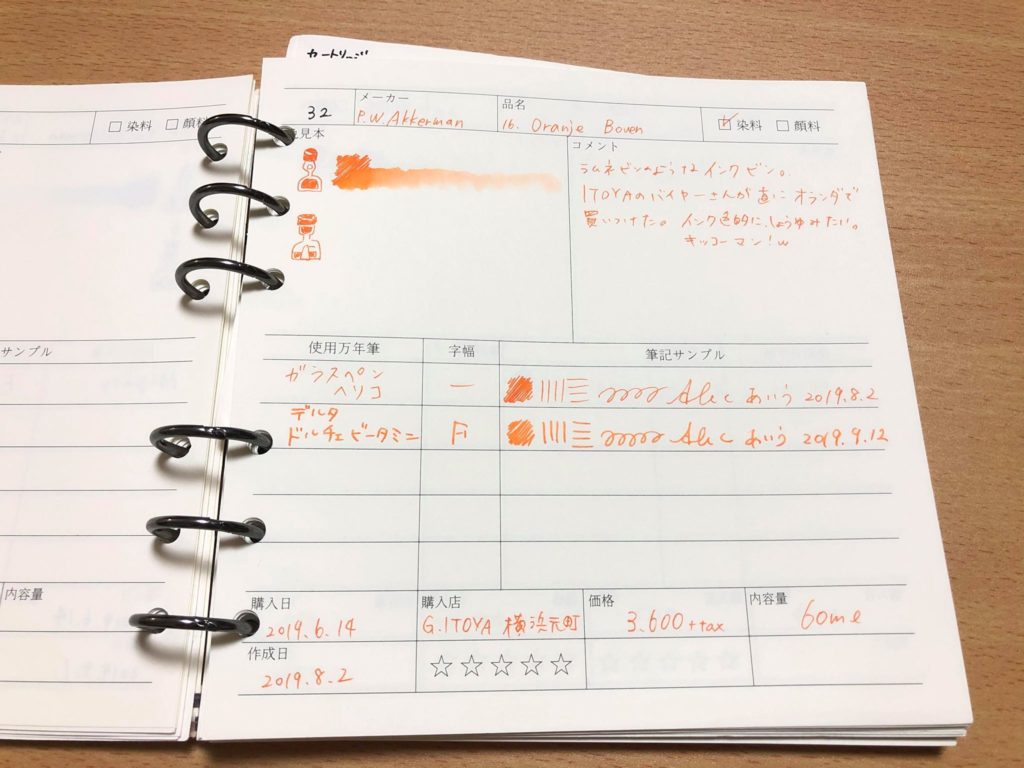 カートリッジ
□ 染料 □ 顔料
サンプル
内容量
32
メーカー
P.W.Akkerman
品名
16. Oranje Boven
☑ 染料 □ 顔料
色見本
コメント
ラムネビンのようなインクビン。
ITOYAのバイヤーさんが直にオランダで
買いつけた。インク色的に、しょうゆみたい。
キッコーマン!w
使用万年筆 字幅 筆記サンプル
ガラスペン
ヘリコ ー Abc あいう 2019.8.2
デルタ
ドルチェビータミニ F Abc あいう 2019.9.12
購入日 購入店 価格 内容量
2019.6.14 G.ITOYA 横浜元町 3.600+tax 60ml
作成日
2019.8.2 ☆☆☆☆☆